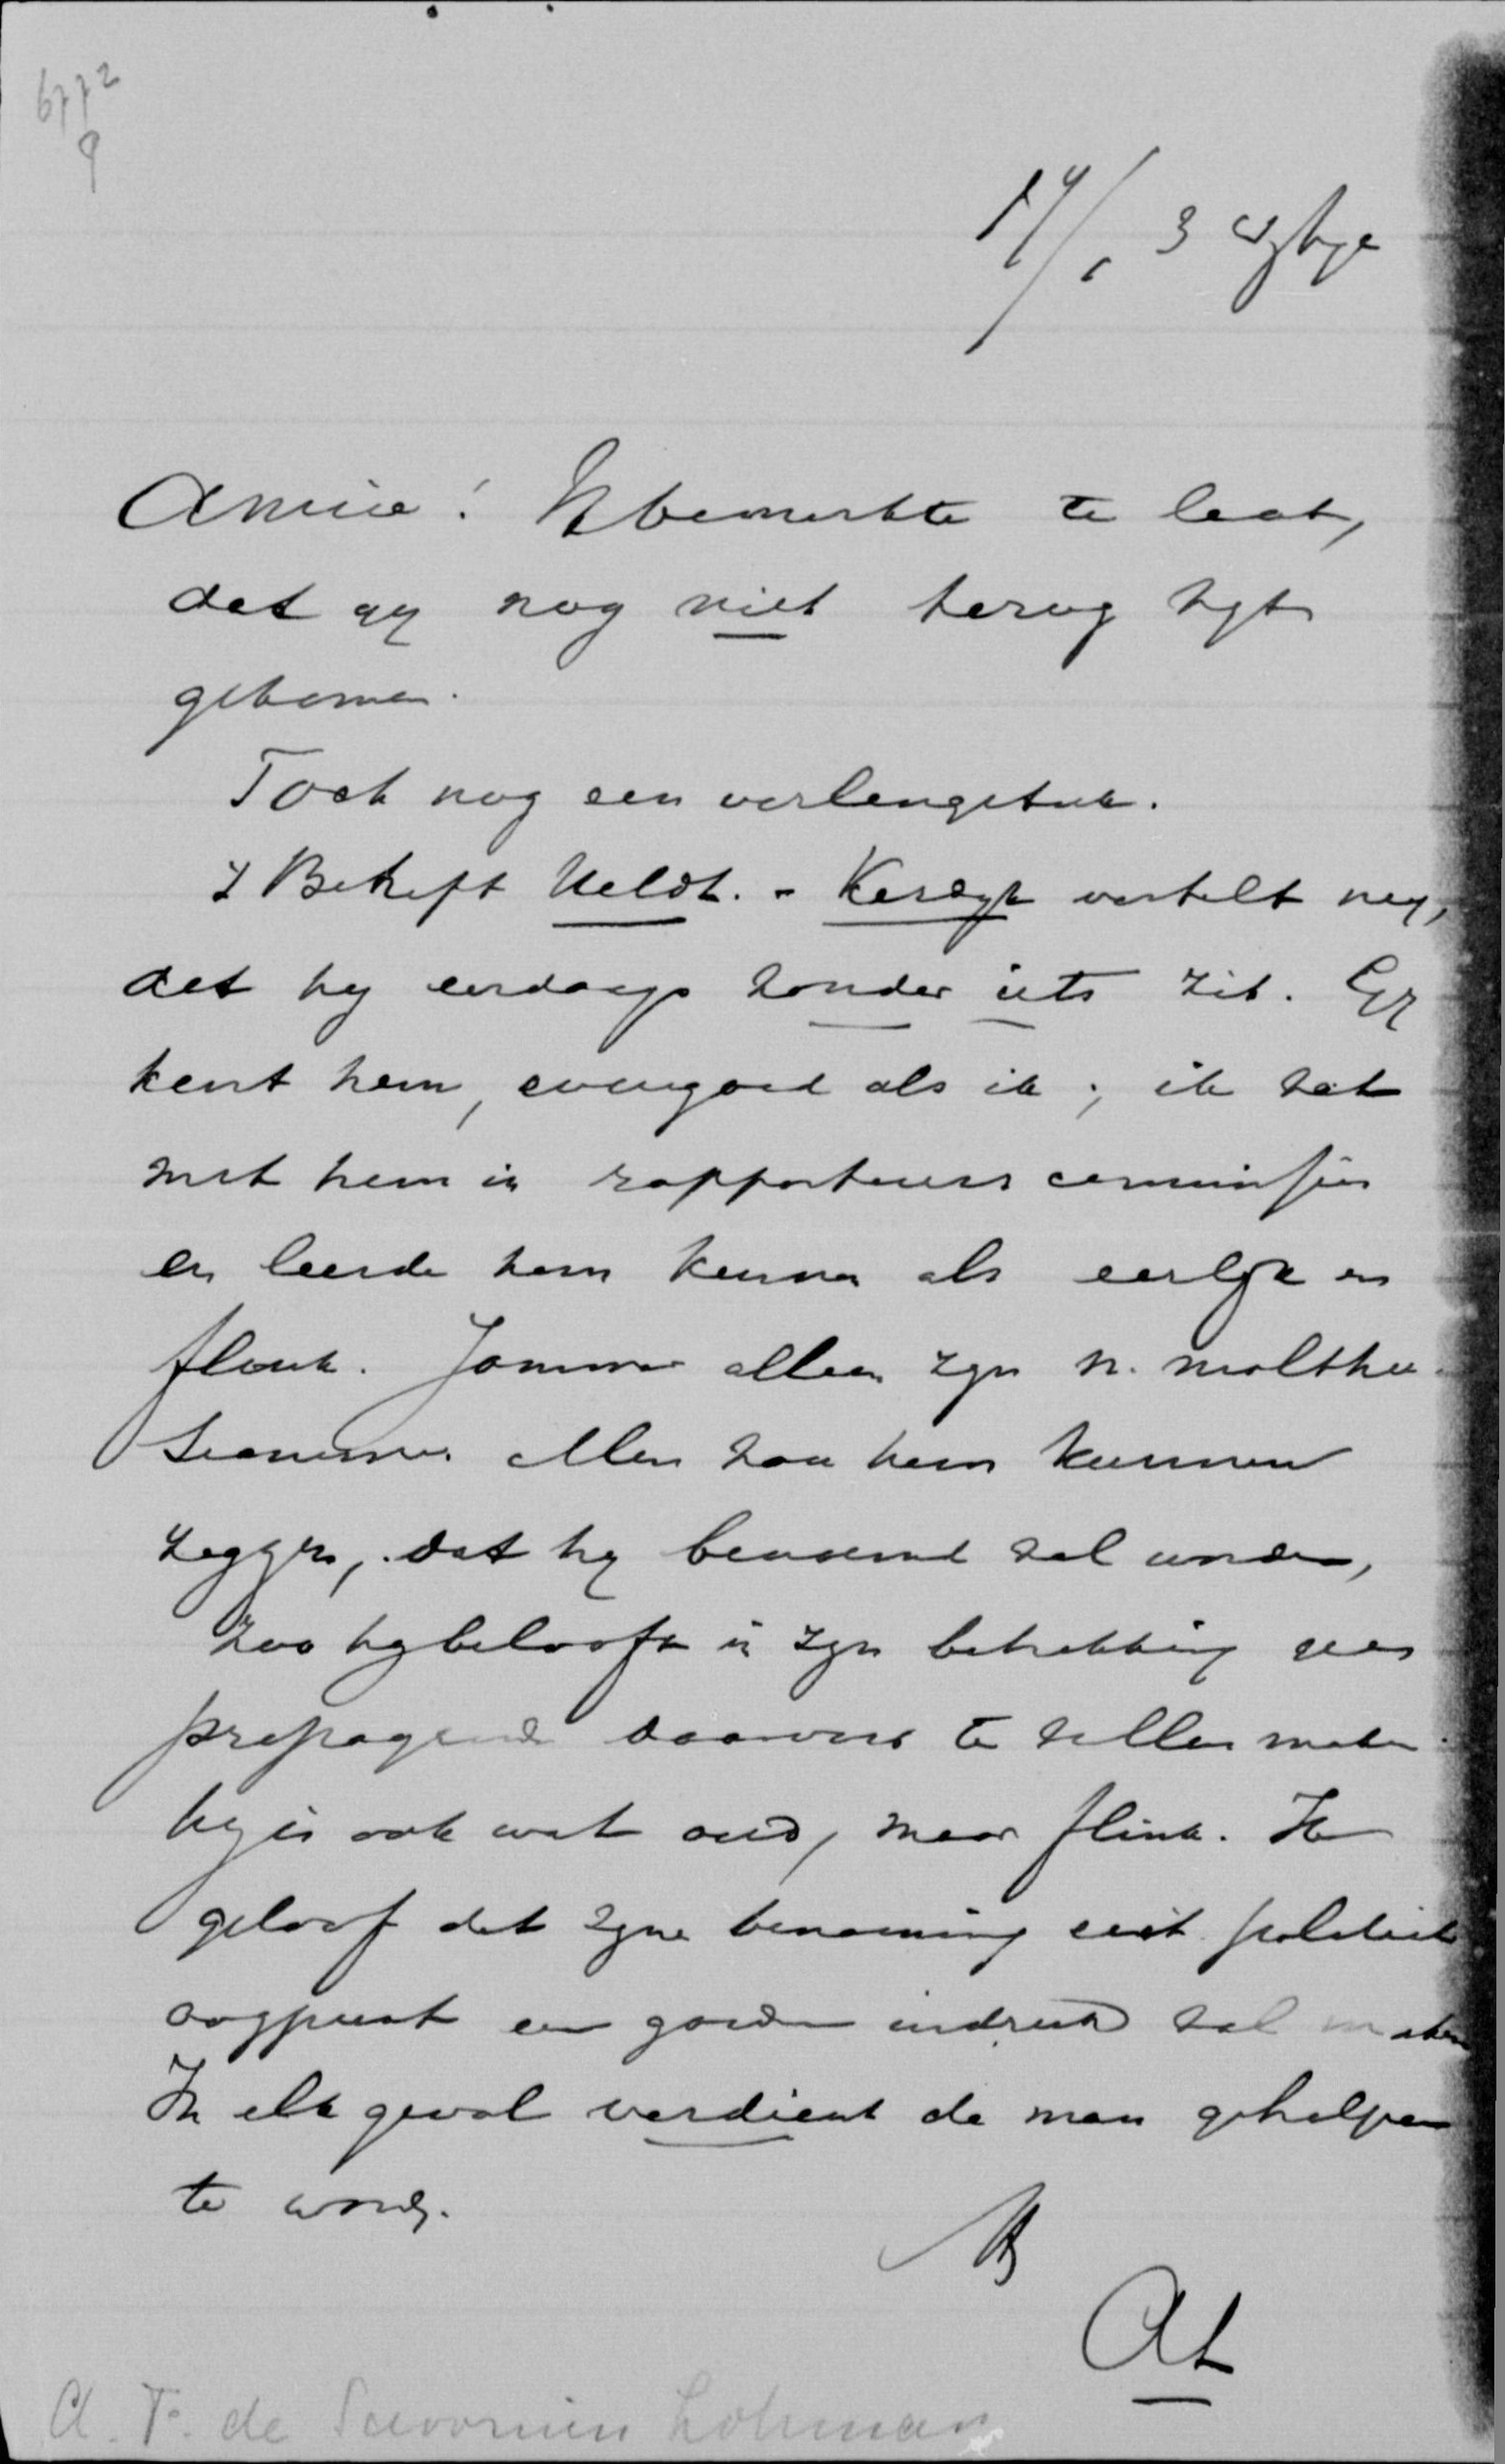 6772
9
14/1 3
Amice! Ik bemerkte te laat,
dat gy nog niet terug zyt
gekomen.
Toch nog een verlengstuk.
Betreft Heldt. - Kerdyk vertelt my,
dat hy eerdaags zonder iets zit. Gy
kent hem, evengoed als ik; ik zat
met hem in rapporteurs commissie
en leerde hem kennen als eerlyk en
flink. Jammer alleen zyn n. malthu-
sianisme. Men zou hem kunnen
zeggen, dat hy benoemd zal worden,
zoo hy belooft in zyn betrekking geen
propaganda daarvoor te zullen maken.
hy is ook wat oud, maar flink. Ik
geloof dat zyne benoeming uit politiek
oogpunt een goeden indruk zal maken
In elk geval verdient de man geholpen
te worden.
AL
A. F. de Savornin Lohman